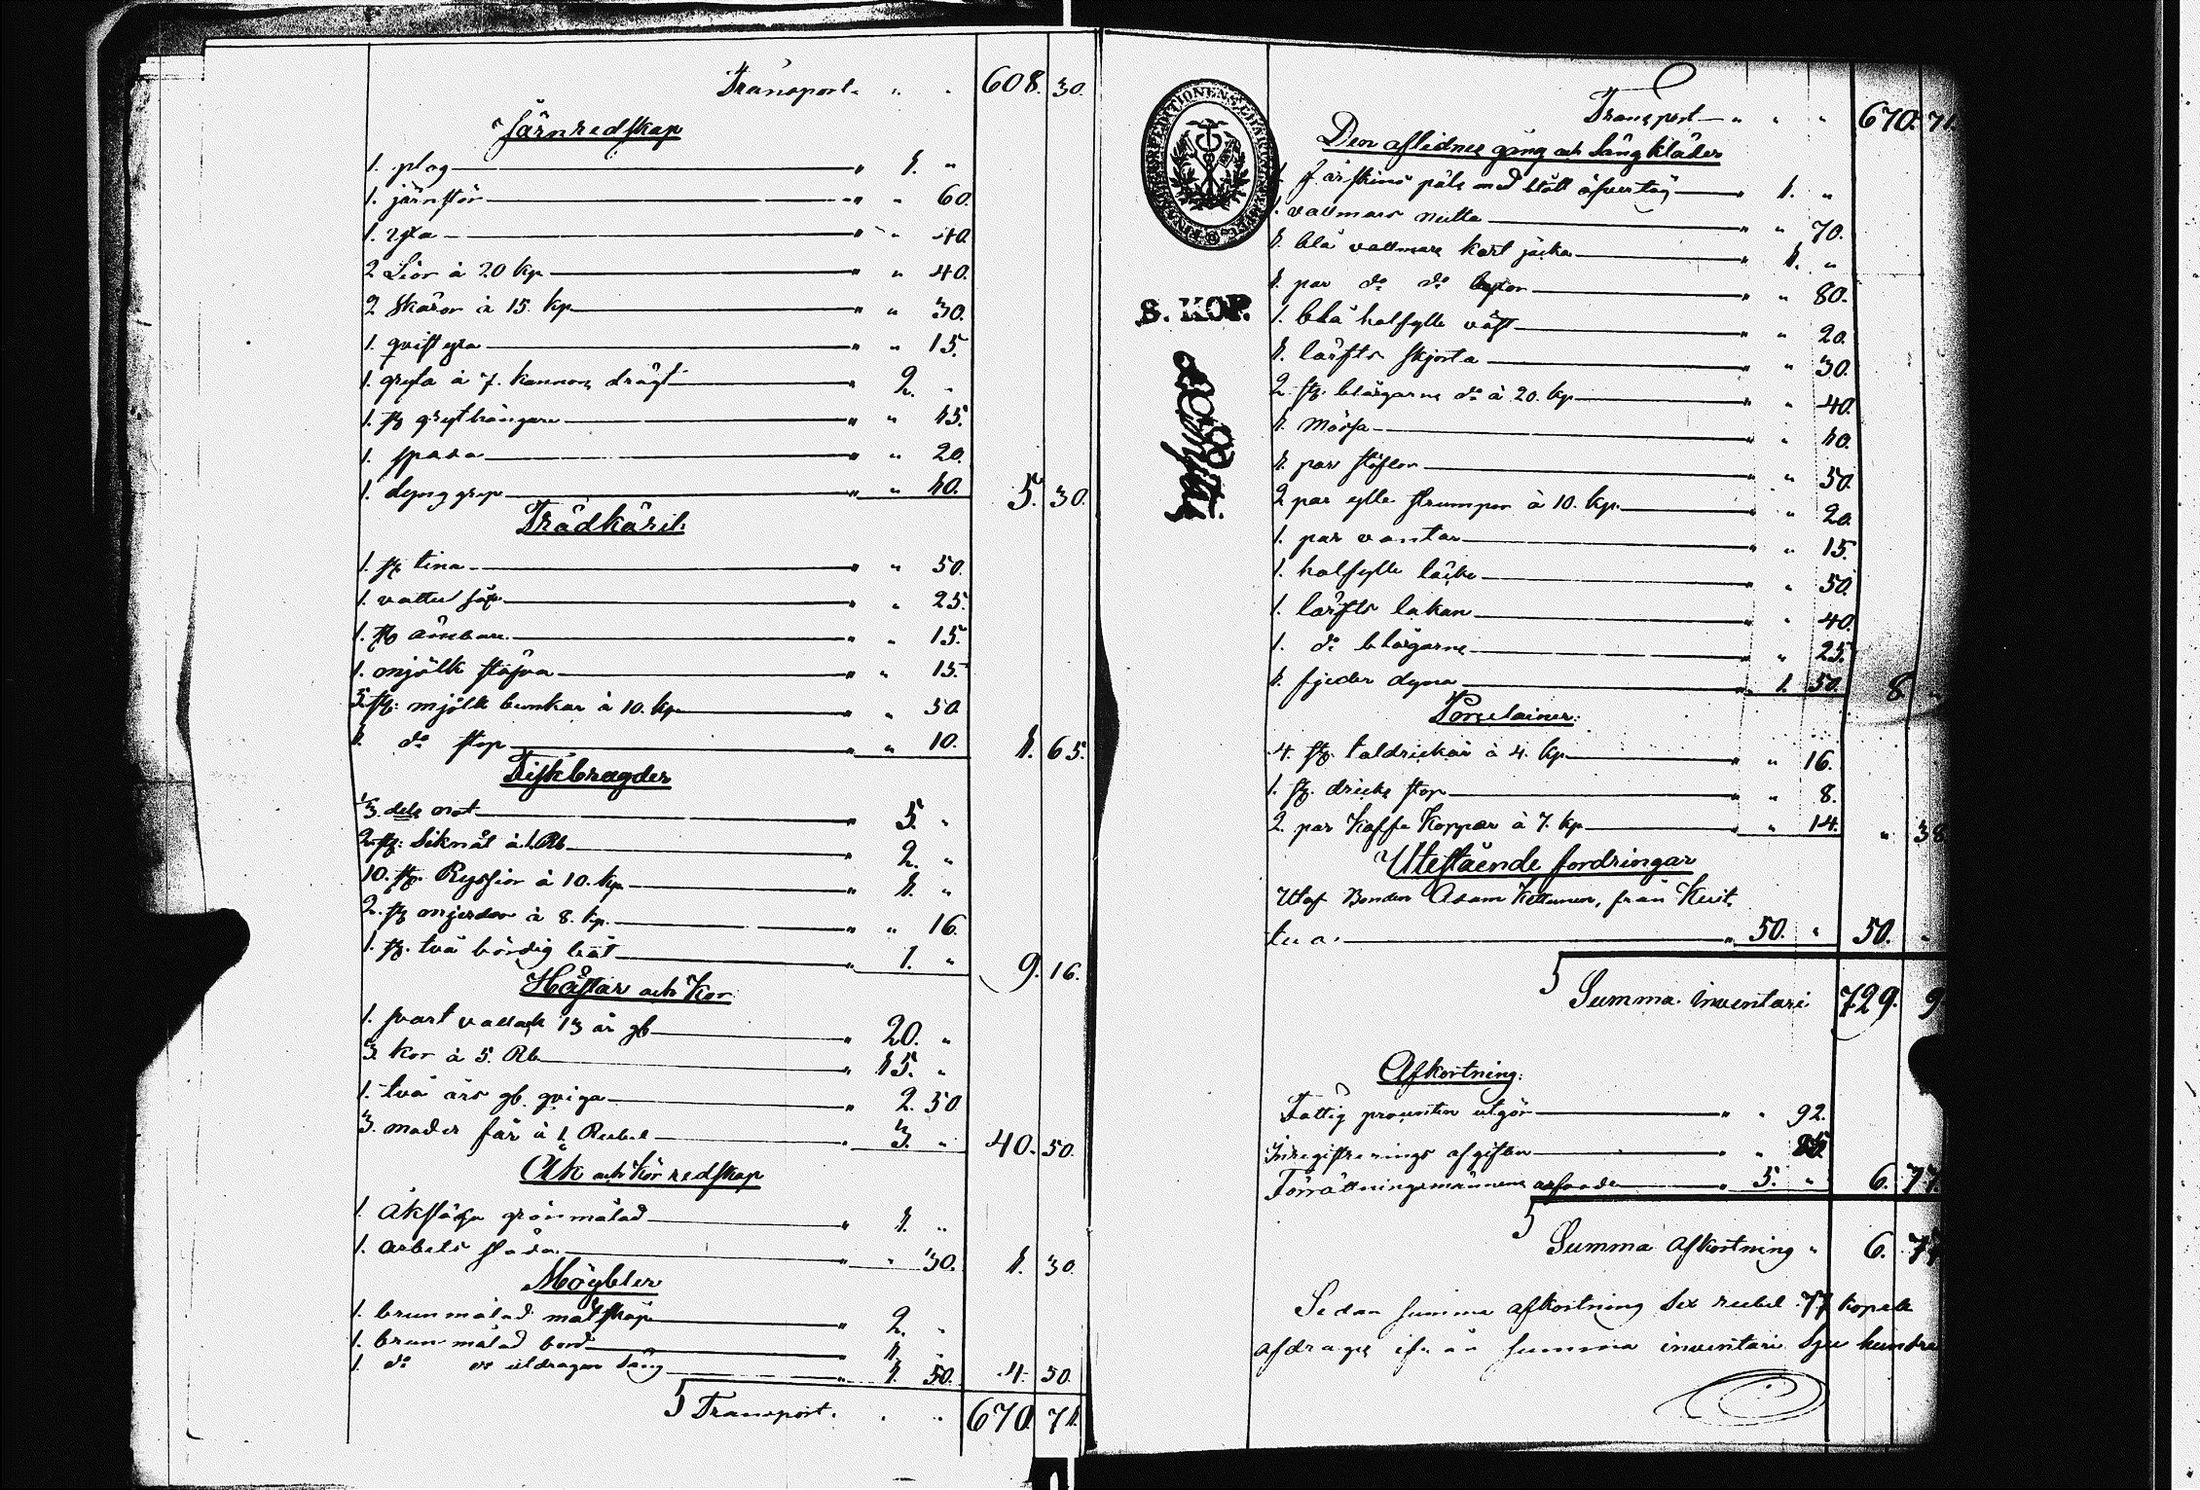 Transport " " 608. 30.
Järnredskap
1. plog " 1. "
1. järnstör " " 60.
1. yxa " " 40.
2 Liar à 20 kp " " 40.
2 skäror à 15. kp " " 30.
1. qvist yxa " " 15.
1. gryta à 7. kannors drägt " 2. "
1. st grythängare " " 15.
1. spada " " 20.
1. dynggrep " " 10. 5. 30.
Trädkäril.
1. st tina " " 50.
1. vatten så " " 25.
1. st ämbare " " 15.
1. mjölk stäfva " " 15.
5. st. mjölk bunkar à 10. kp " " 50.
1. do stop " " 10. 1. 65.
Fiskbragder
1/3 dels not " 5. "
2. st. Siknät à 1. Rb " 2. "
10. st. Ryssior à 10. kp " 1. "
2. st mjerdor à 8. kp. " " 16.
1. st. två bördig båt " 1. " 9. 16.
Hästar och Kor
1. svart vallack 13 år gb " 20. "
3. kor à 5. Rb " 15. "
1. två års gb. qviga " 2. 50
3. moder får à 1 Rubel " 3. " 40. 50.
Åk och Körredskap
1. åksläda grönmålad " 1. "
1. arbets släda " " 30. 1. 30.
Möybler
1. brunmålad matskåp " 2. "
1. brunmålad bord " 1. "
1. do utdragen säng " 1. 50. 4. 50.
Transport. 670. 71.
S. KOP.
Transport " " " 670. 71.
Den aflidnes gång och Sängkläder
1. fårskins päls med blått öfvertyg " 1. "
1. vallmars " " 70.
1. blå vallmars kort jacka " 1. "
1. par do do byxor " " 80.
1. blå halfylle väst " " 20.
1. lärfts skjorta " " 30.
2. st. blårgarns do à 20. kp " " 40.
1. mössa " " 10.
1. par stöflor " " 50.
2 par ylle strumpor à 10. kp. " " 20.
1. par vantar " " 15.
1. halfylle täcke " " 50.
1. lärfts lakan " " 40.
1. do blårgarns " " 25.
1. fjeder dyna " 1. 50. 8. "
Porcelainer.
4. st. taldrickar à 4. kp " " 16.
1. st. dricks stop " " 8.
2. par Kaffe Koppar à 7. kp " " 14. " 38
Utestående fordringar
Utaf Bonden Adam Kettunen, från
50. " 50. "
Summa inventarii 729. 9
Afkortning.
Fattig procenten utgör " " 92.
Inregistrerings afgiften " " 85.
Förrättningsmännens arfvode " 5. " 6. 77.
Summa afkortning " 6. 77
Sedan summa afkortning Sex rubel 77 kopek
afdrages ifrån summa inventarii Sju hundra